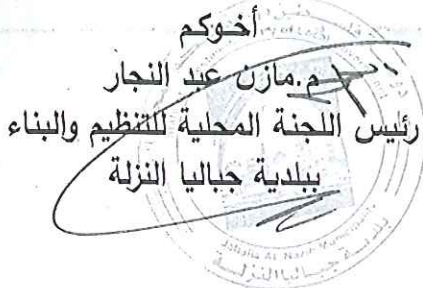 أخوكم
م.مازن عبد النجار
رئيس اللجنة المحلية للتنظيم والبناء
ببلدية جباليا النزلة
Jabalia Al Nazla Municipality
بلدية جباليا النزلة